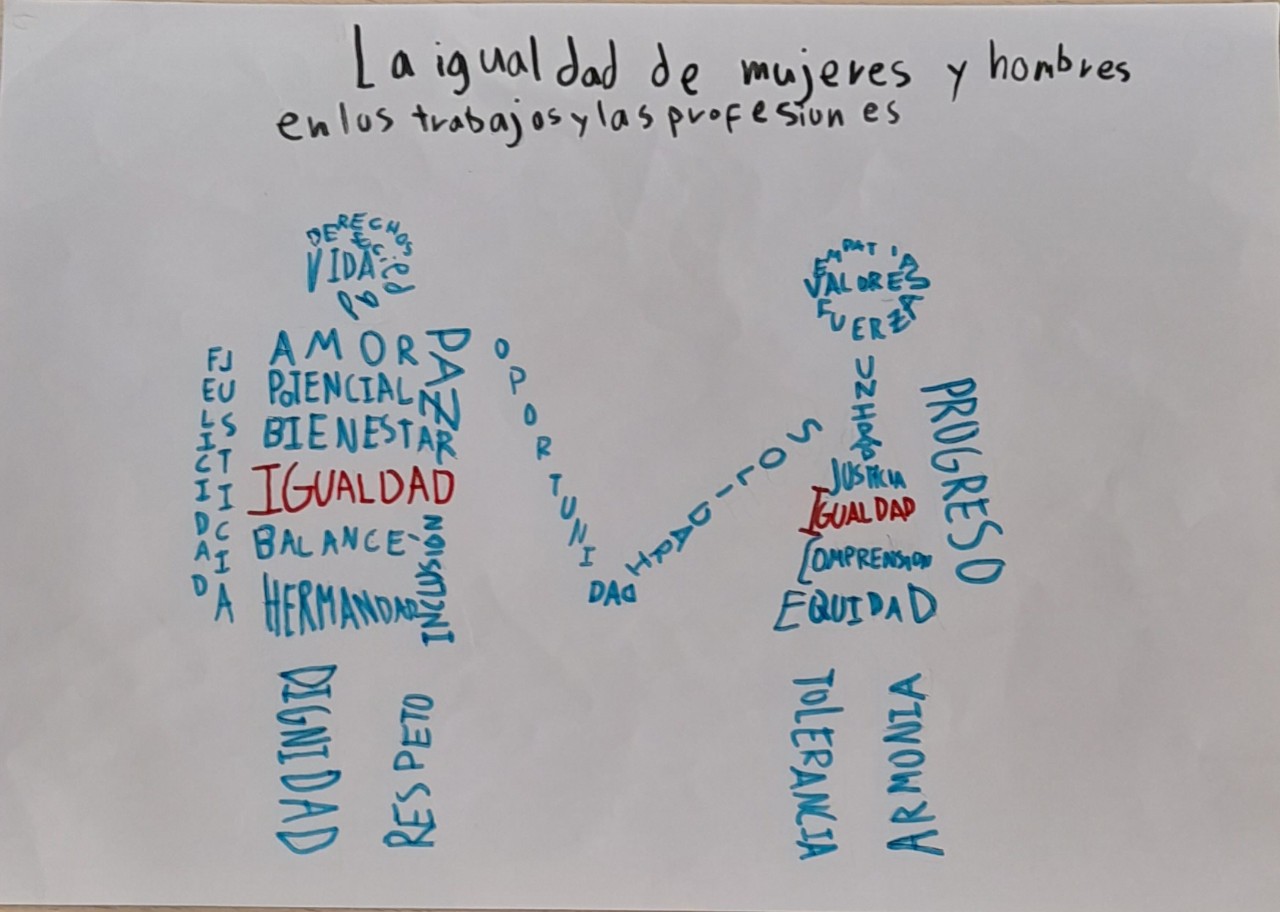 La igualdad de mujeres y hombres
en los trabajos y las profesiones
DERECHOS
VIDA
EMPATIA
VALORES
FUERZA
AMOR
PAZ
POTENCIAL
BIENESTAR
IGUALDAD
BALANCE
INCLUSION
HERMANDAD
FELICIDAD
JUSTICIA
OPORTUNIDAD
SOLIDARI
DAD
JUSTICIA
IGUALDAD
COMPRENSION
EQUIDAD
PROGRESO
DIGNIDAD
RESPETO
TOLERANCIA
ARMONIA